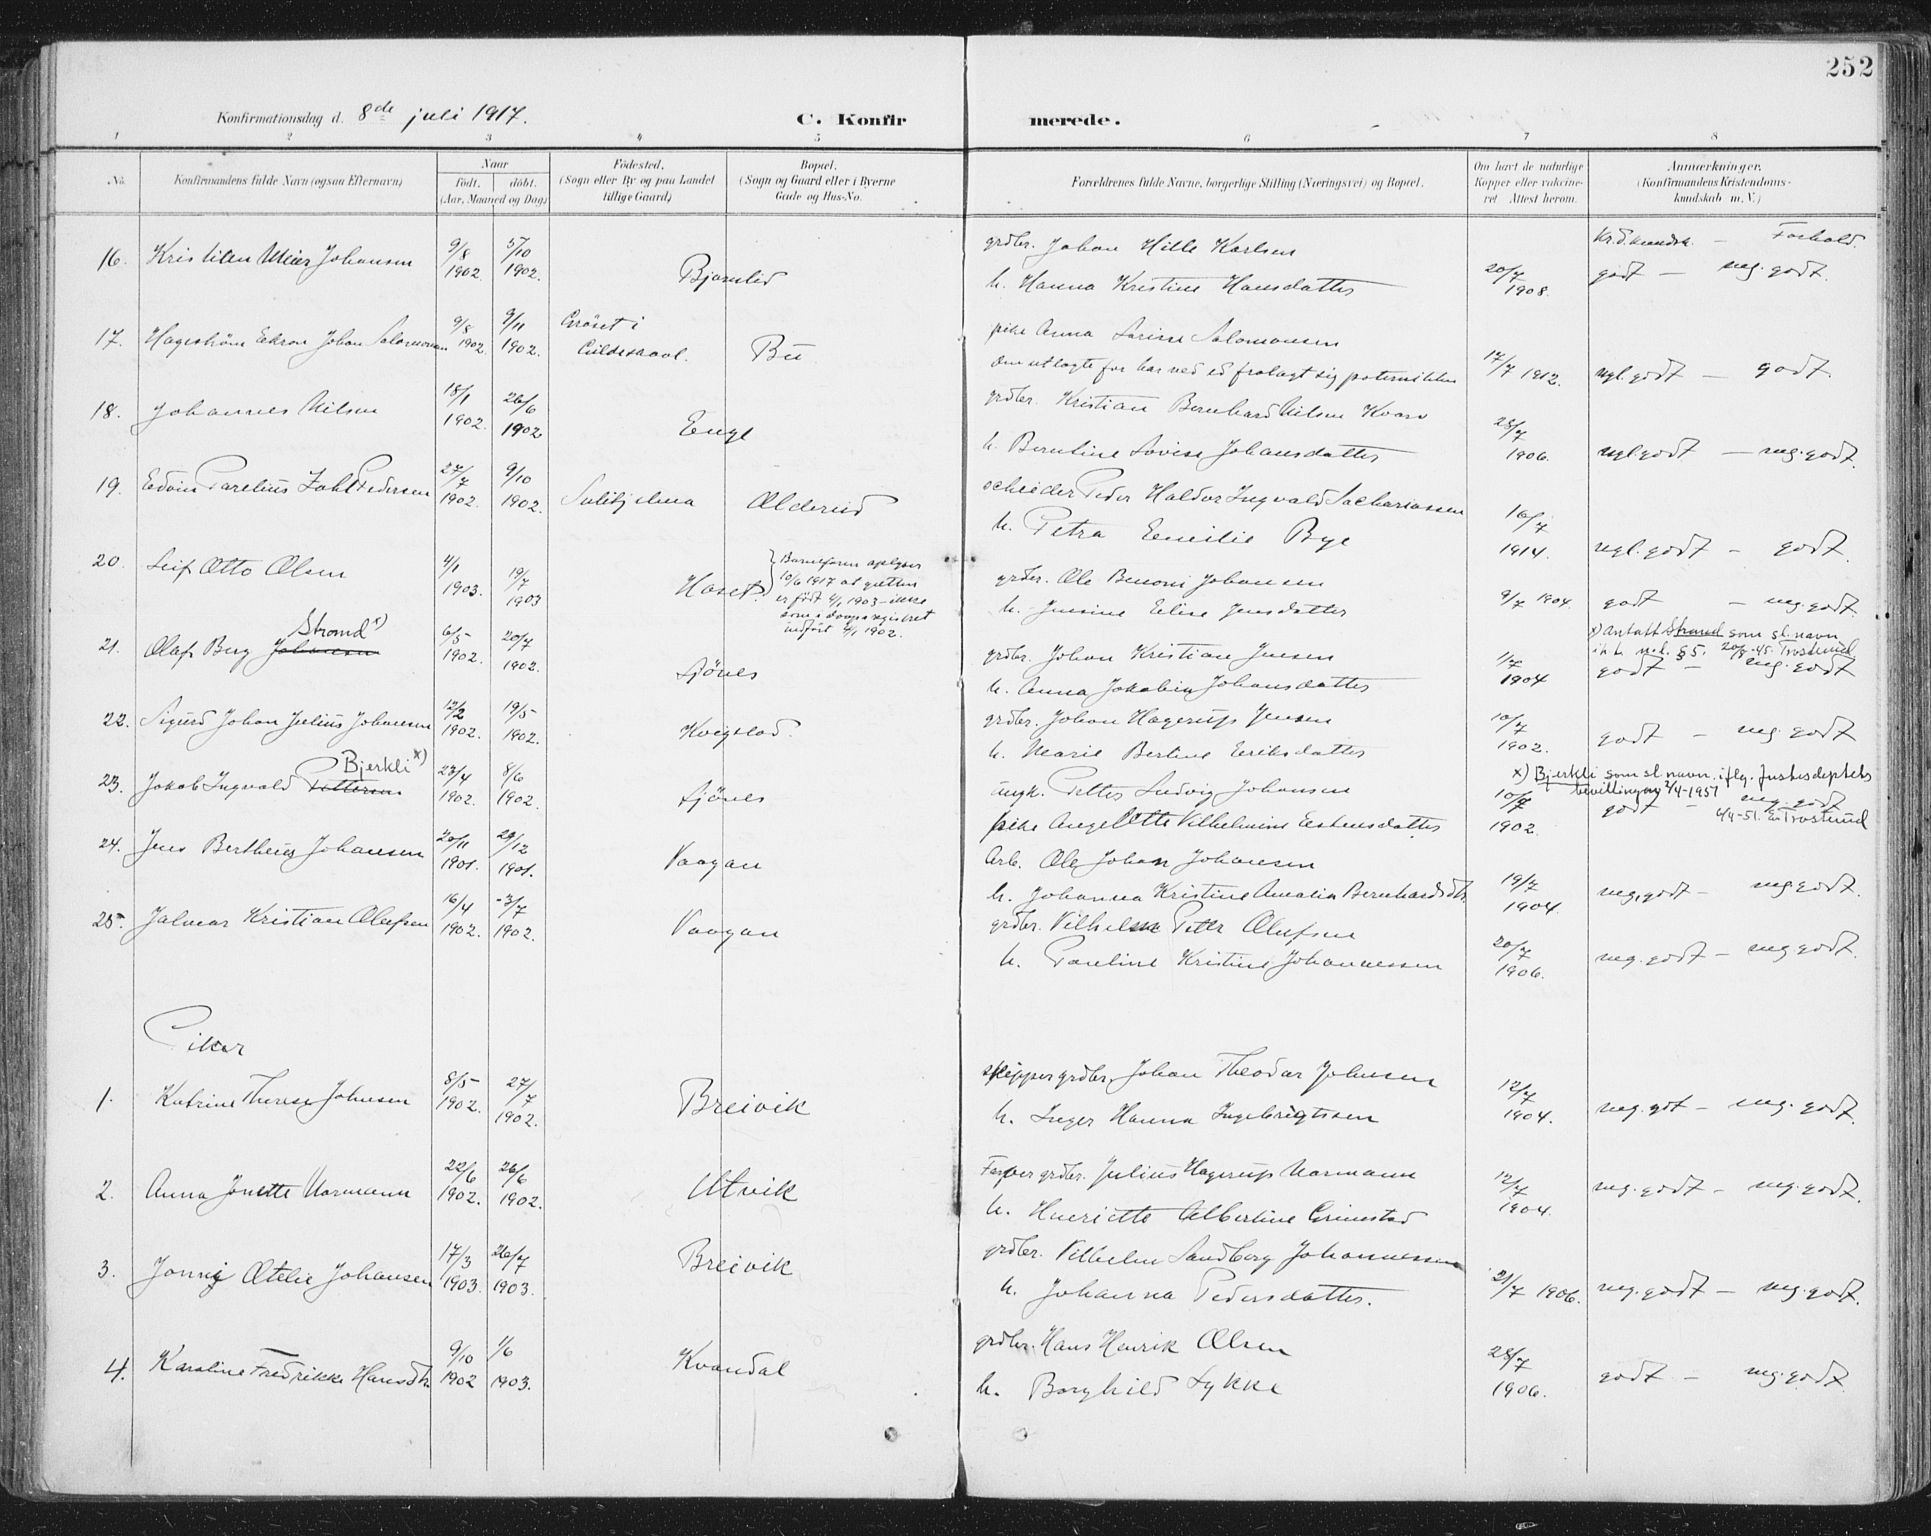 252
Konfirmationsdag d. 8de juli 1917. C. Konfirmerede.
1 2 3 4 5 6 7 8
No. Konfirmandens fulde Navn (ogsaa Efternavn) Naar født. døbt. (Aar, Maaned og Dag) Fødested. (Sogn eller By og paa Landet tillige Gaard) Bopæl. (Sogn og Gaard eller i Byerne Gade og Hus-No. Forældrenes fulde Navne, borgerlige Stilling (Næringsvei) og Bopæl. Om havt de naturlige Kopper eller vakcineret Attest herom. Anmærkninger. (Konfirmandens Kristendomskundskab m.V.)
Kr.d.kundsk. — Forhold.
16. Kristian Meier Johansen 9/8 1902. 5/10 1902. Bjørnlid grdbr. Johan Hille Karlsen
h. Hanna Kristine Hansdatter 20/7 1908. godt — meg. godt.
17. Johan Salomonsen 9/8 1902. 9/11 1902. i Gildeskaal. Bø pike Anna Salomonsen
har ved ed fralagt sig 17/7 1912. ngl. godt — godt.
18. Johannes Nilsen 18/1 1902. 26/6 1902 Enge grdbr. Kristian Bernhard Nilsen
h. Berntine Lovise Johansdatter 25/7 1906. ngl. godt — meg. godt.
19. Edvin Parelius Zahl Pedersen 27/7 1902. 9/10 1902. Sulitjelma Alderud Peder Haldor Ingvald Sachariassen
h. Petra Emilie Bye 16/7 1914. ngl. godt — godt.
20. Leif Otto Olsen 4/1 1903. 19/7 1903 Haset. grdbr. Ole Benoni Johansen
Barnefaren oplyser
10/6 1917 at gutten
er født 4/1 1903 – ikke
som i daapsregistret
indført 4/1 1902.
h. Jensine Elise Jensdatter 9/7 1904. godt — meg. godt.
21. Olaf Berg Johansen Strand x) 6/5 1902. 20/7 1902. Sjønes grdbr. Johan Kristian Jensen
x) Antatt Strand som sl. navn
i h.t. n.l. § 5. 20/8-45. Trostrud
h. Anna Jakobine Johansdatter 1/7 1904 godt — meg. godt
22. Sigurd Johan Julius Johansen 12/2 1902. 19/5 1902. Kvigstad. grdbr. Johan Hagerup Jensen
h. Marie Bertine Eriksdatter 10/7 1902. godt — meg. godt
23. Jakob Ingvald Pettersen Bjerkli x) 23/4 1902. 8/6 1902. Sjønes ungk. Petter Ludvig Johansen
x) Bjerkli som sl. navn. iflg. Justisdeptets
bevilling av 4/4-1951
pike Vilhelmine Estensdatter 10/7 1902. godt — meg. godt
4/4-51. En Trostrud
24. Jens Bertheus Johansen 20/11 1901. 29/12 1901. Vaagan Arb. Ole Johan Johansen
h. Johanna Kristine Amalia Bernhardsdtr. 19/7 1904. meg. godt — meg. godt.
25. Jalmar Kristian Olufsen 16/4 1902. 3/7 1902. Vaagan grdbr. Vilhelm Petter Olufsen
h. Pauline Kristine Johannessen 20/7 1906. meg. godt — meg. godt.
Piker
1. Katrine Therese Johnsen 8/5 1902. 27/7 1902. Breivik skipper grdbr. Johan Theodor Johnsen
h. Inger Hanna Ingebrigtsen 12/7 1904. meg. got — meg. godt.
2. Anna Jonette Normann 22/6 1902. 26/6 1902. Utvik grdbr. Julius Hagerup Normann
h. Henriette Albertine Grimstad 12/7 1904. meg. godt — meg. godt.
3. Jonny Otelie Johansen 17/3 1903. 26/7 1903. Breivik grdbr. Vilhelm Sandberg Johannessen
h. Johanna Pedersdatter. 21/7 1906. meg. godt — meg. godt.
4. Karoline Fredrikke Hansdtr. 9/10 1902 1/6 1903. Kvandal grdbr. Hans Henrik Olsen
h. Borghild Lykke 28/7 1906. godt — meg. godt.